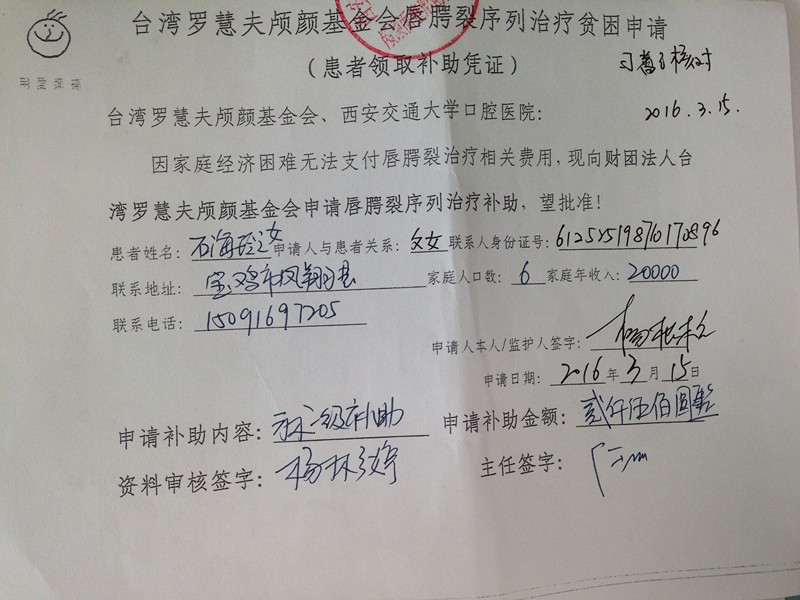 台湾罗慧夫颅颜基金会唇腭裂序列治疗贫困申请
（患者领取补助凭证）
核对
2016.3.15.
台湾罗慧夫颅颜基金会、西安交通大学口腔医院：
因家庭经济困难无法支付唇腭裂治疗相关费用，现向财团法人台
湾罗慧夫颅颜基金会申请唇腭裂序列治疗补助，望批准！
患者姓名：石海玲之女 申请人与患者关系：父女 联系人身份证号：612525198710170896
联系地址：宝鸡市凤翔县 家庭人口数：6 家庭年收入：20000
联系电话：15091697205
申请人本人/监护人签字：
申请日期：2016年3月15日
申请补助内容：级补助 申请补助金额：贰仟伍佰圆整
资料审核签字：杨 主任签字：